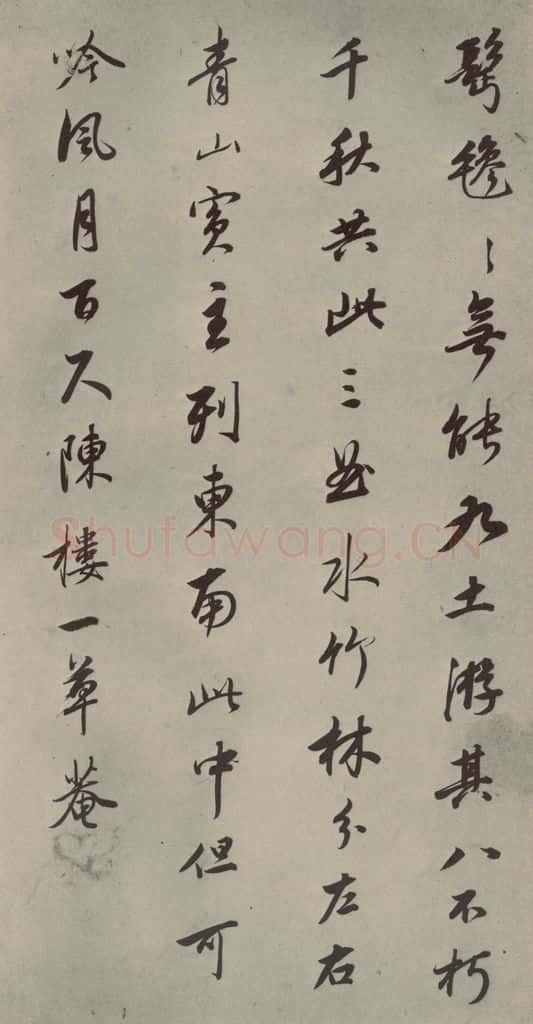 毿〻無能九土游其八不朽
千秋共此三曲水竹林分左右
青山賓主列東南此中但可
吟風月百尺陳樓一草菴
Shufawang.CN